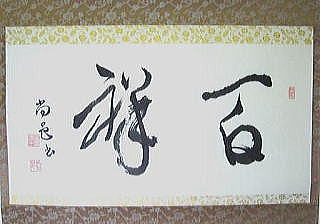 百祥
尚亭書